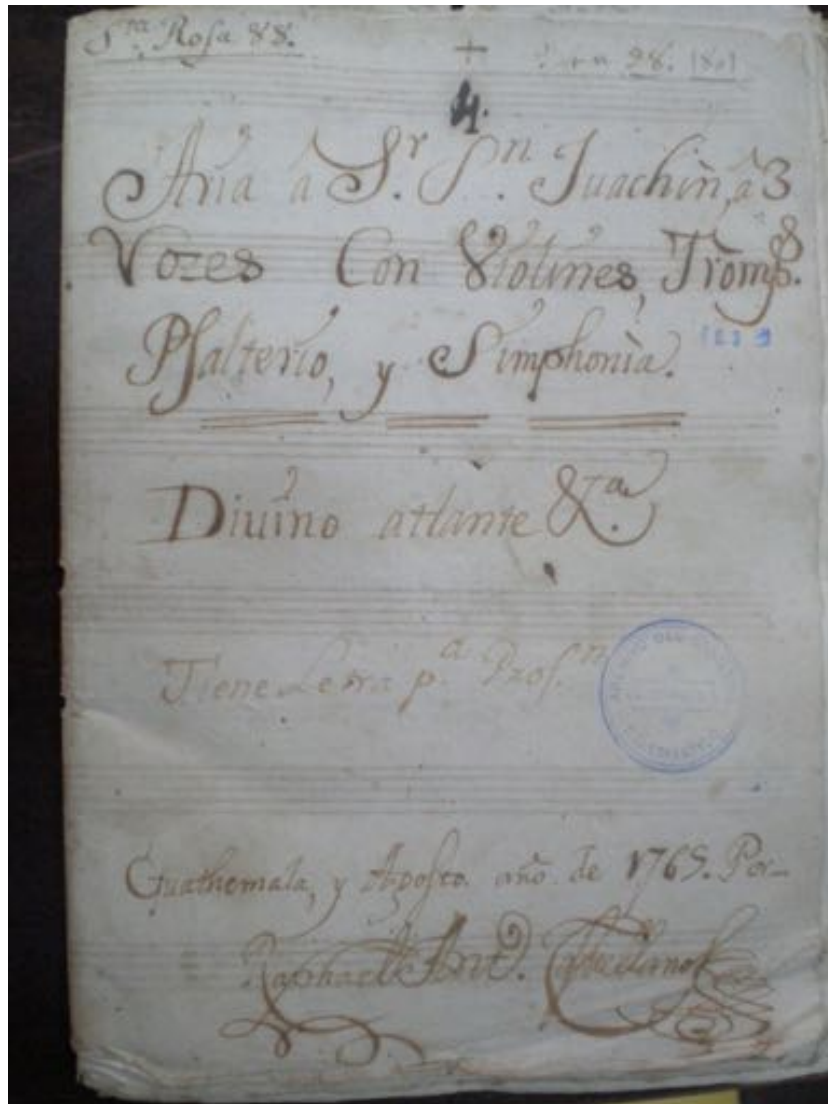 S.ta Rosa 88.
+ 28. 1801
4.
Aria â S.r S.n Juachin, â 3
Vozes Con Violines, Tromp.s
Psalterio, y Simphonìa.
Diuino atlante &.a
Tiene Letra p.a Pros.n
Guathemala, y Agosto. año de 1765. Por-
Raphael Ant.o Castellanos